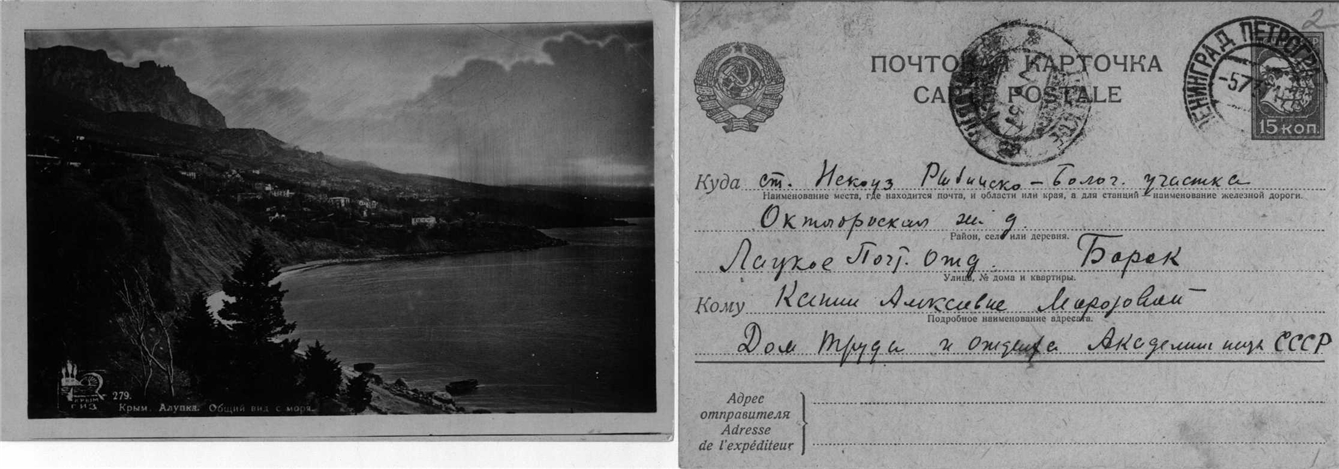 279.
КРЫМ
ГИЗ
Крым. Алупка. Общий вид с моря.
ПОЧТОВАЯ КАРТОЧКА
CARTE POSTALE
ЛЕНИНГРАД. ПЕТРОГР
-5 7
15 КОП.
2
Куда ст. Некоуз Рыбинско-Болог. участка
Наименование места, где находится почта, и области или края, а для станций—наименование железной дороги.
Октябрьская ж. д.
Район, село или деревня.
Лацкое Почт. отд. Борок
Улица, № дома и квартиры.
Кому Ксении Алексеевне Морозовой
Подробное наименование адресата.
Дом труда и отдыха Академии наук СССР
Адрес
отправителя
Adresse
de l'expéditeur
1